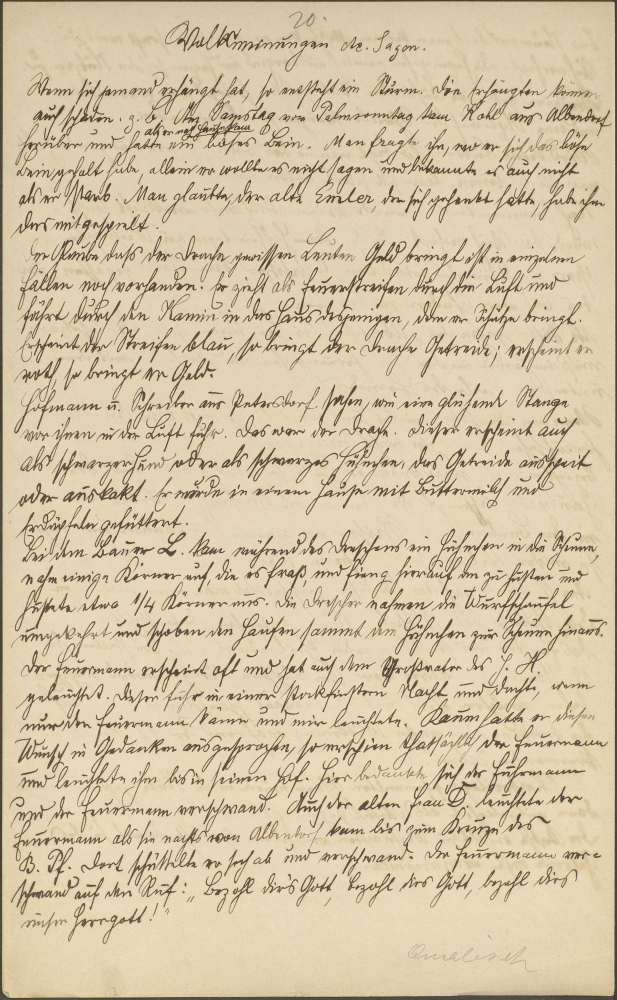 20.
Volksmeinungen etc. Sagen.
Wenn sich jemand erhängt hat, so entsteht ein Sturm. Die Erhängten können
auch schaden. z. B. Am Samstag vor Palmsonntag kam Kohl aus Albendorf
als er nach Hause kam
herüber und hatte ein böses Bein. Man fragte ihn, wo er sich das böse
Bein geholt habe, allein er wollte es nicht sagen und bekannte es auch nicht
als er starb. Man glaubte, der alte Exeler, der sich gehenkt hatte, habe ihm
das mitgespielt.
Der Glaube dass der Drache gewissen Leuten Geld bringt ist in einzelnen
Fällen noch vorhanden. Er zieht als Feuerstreifen durch die Luft und
fährt durch den Kamin in das Haus desjenigen, dem er Schätze bringt.
Erscheint der Streifen blau, so bringt der Drache Getreide; erscheint er
roth, so bringt er Geld.
Hofmann u. Schreiber aus Petersdorf sahen, wie eine glühende Stange
vor ihnen in der Luft fuhr. Das war der Drache. Dieser erscheint auch
als schwarzer Hund oder als schwarzes Hühnchen, das Getreide ausspeit
oder auskakt. Er wurde in einem Hause mit Buttermilch und
Erdäpfeln gefüttert.
Bei dem Bauer L. kam während des Dreschens ein Hühnchen in die Scheune,
nahm einige Körner auf, die es fraß, und fieng hierauf an zu husten und
hustete etwa 1/4 Körner aus. Die Drescher nahmen die Wurfschaufel
umgekehrt und schoben den Haufen sammt dem Hühnchen zur Scheune hinaus.
Der Feuermann erscheint oft und hat auch dem Großvater des J. H.
geleuchtet. Dieser fuhr in einer stockfinstern Nacht und dachte, wenn
nur der Feuermann käme und mir leuchtete. Kaum hatte er diesen
Wunsch in Gedanken ausgesprochen, so erschien thatsächlich der Feuermann
und leuchtete ihm bis in seinen Hof. Hier bedankte sich der Fuhrmann
und der Feuermann verschwand. Auch der alten Frau D. leuchtete der
Feuermann als sie nachts von Albendorf kam bis zum Kreuze des
B. Pf. Dort schüttelte er sich ab und verschwand. Der Feuermann ver-
schwand auf den Ruf: „Bezohl dir's Gott, bezohl dirs Gott, bezohl dirs
unser Herrgott!"